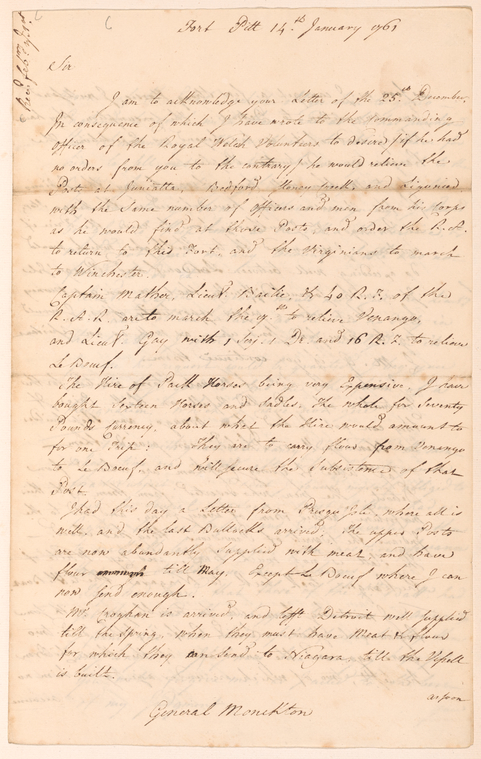 Fort Pitt 14.th January 1761
Sir
I am to acknowledge your Letter of the 25.th December.
In consequence of which I have wrote to the Commanding
officer of the Royal Welch Volunteers to desire / if he had
no orders from you to the contrary / he would relieve the
Posts at Juniatta, Bedford, Stoney Creek, and Ligonier
with the same number of officers and men from his Corps
as he would find at those Posts, and order the R. A.
to return to this Fort, and the Virginians to march
to Winchester.
Captain Mather, Lieut. Bailie, & 40 R. F. of the
R. A. R. are to march the to relieve Venango,
and Lieut. Guy with 1 Serj. 1 Dr. and 16 R. F. to relieve
Le Boeuf.
The Hire of Pack Horses being very Expensive. I have
bought fourteen Horses and sadles. The whole for Seventy
Pounds Currency, about what the Hire would amount to
for one Trip: They are to carry flour from Venango
to Le Boeuf, and will secure the Subsistence of that
Post.
I had this day a Letter from Presqu'Isle, where all is
well, and the last Bullocks arrived. The upper Posts
are now abundantly Supplied with meat, and have
flour till May, Except Le Boeuf where I can
now send enough.
Mr. Croghan is arrived, and left Detroit well supplied
till the Spring, when they must have Meat & flour
for which they can send to Niagara till the Vessell
is built.
as soon
General Monckton